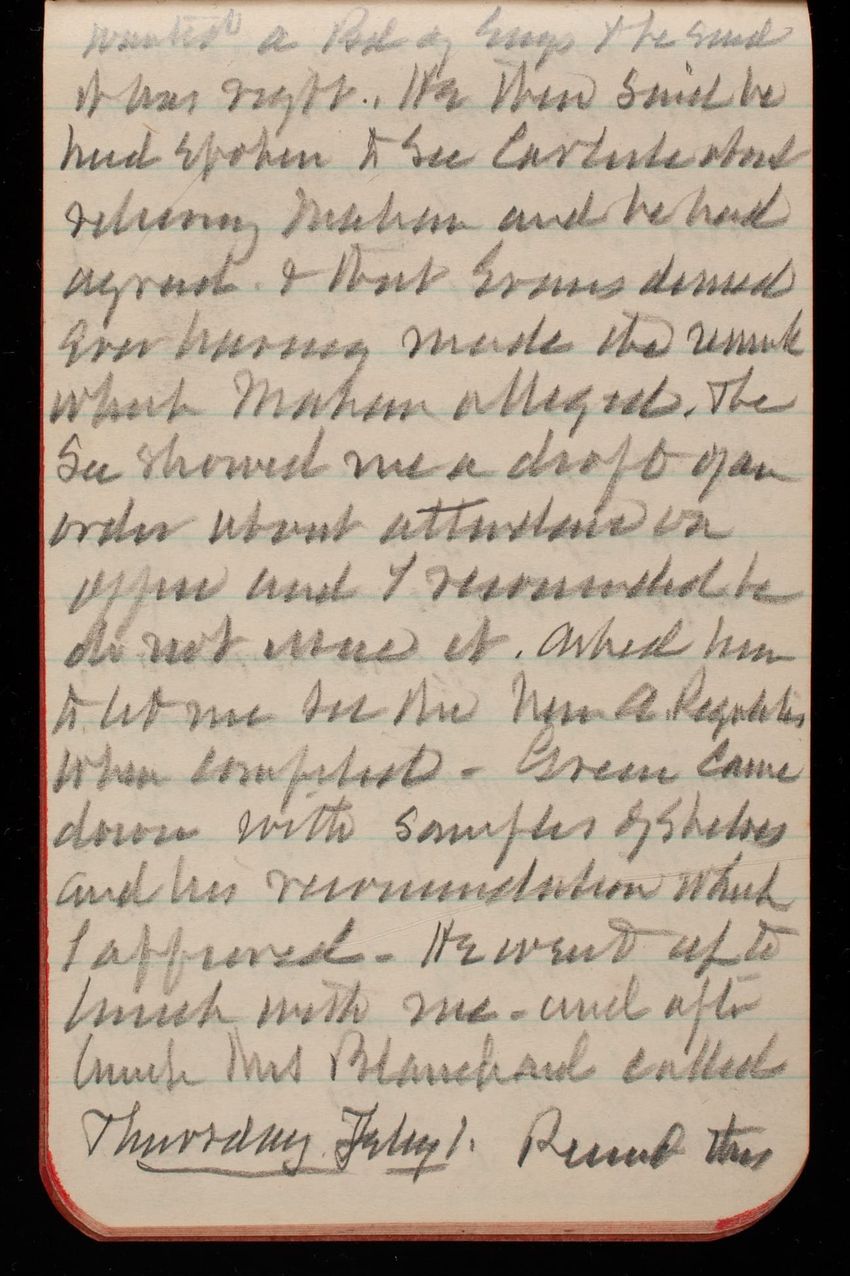 wanted a Bd of Engs & he said
it was right. He then said he
had spoken to Sec Carlisle about
relieving Mahan and he had
agreed. & that Evans denied
ever having made the remark
which Mahan alleged. The
Sec showed me a draft of an
order about attendance on
office and I recommended he
do not issue it. Asked him
to let me see the New A. Regulations
when completed - Green came
down with samples of shelves
and his recommendation which
I approved - He went up to
lunch with me - and after
lunch Mrs Blanchard called
Thursday Feby 1. Recd this